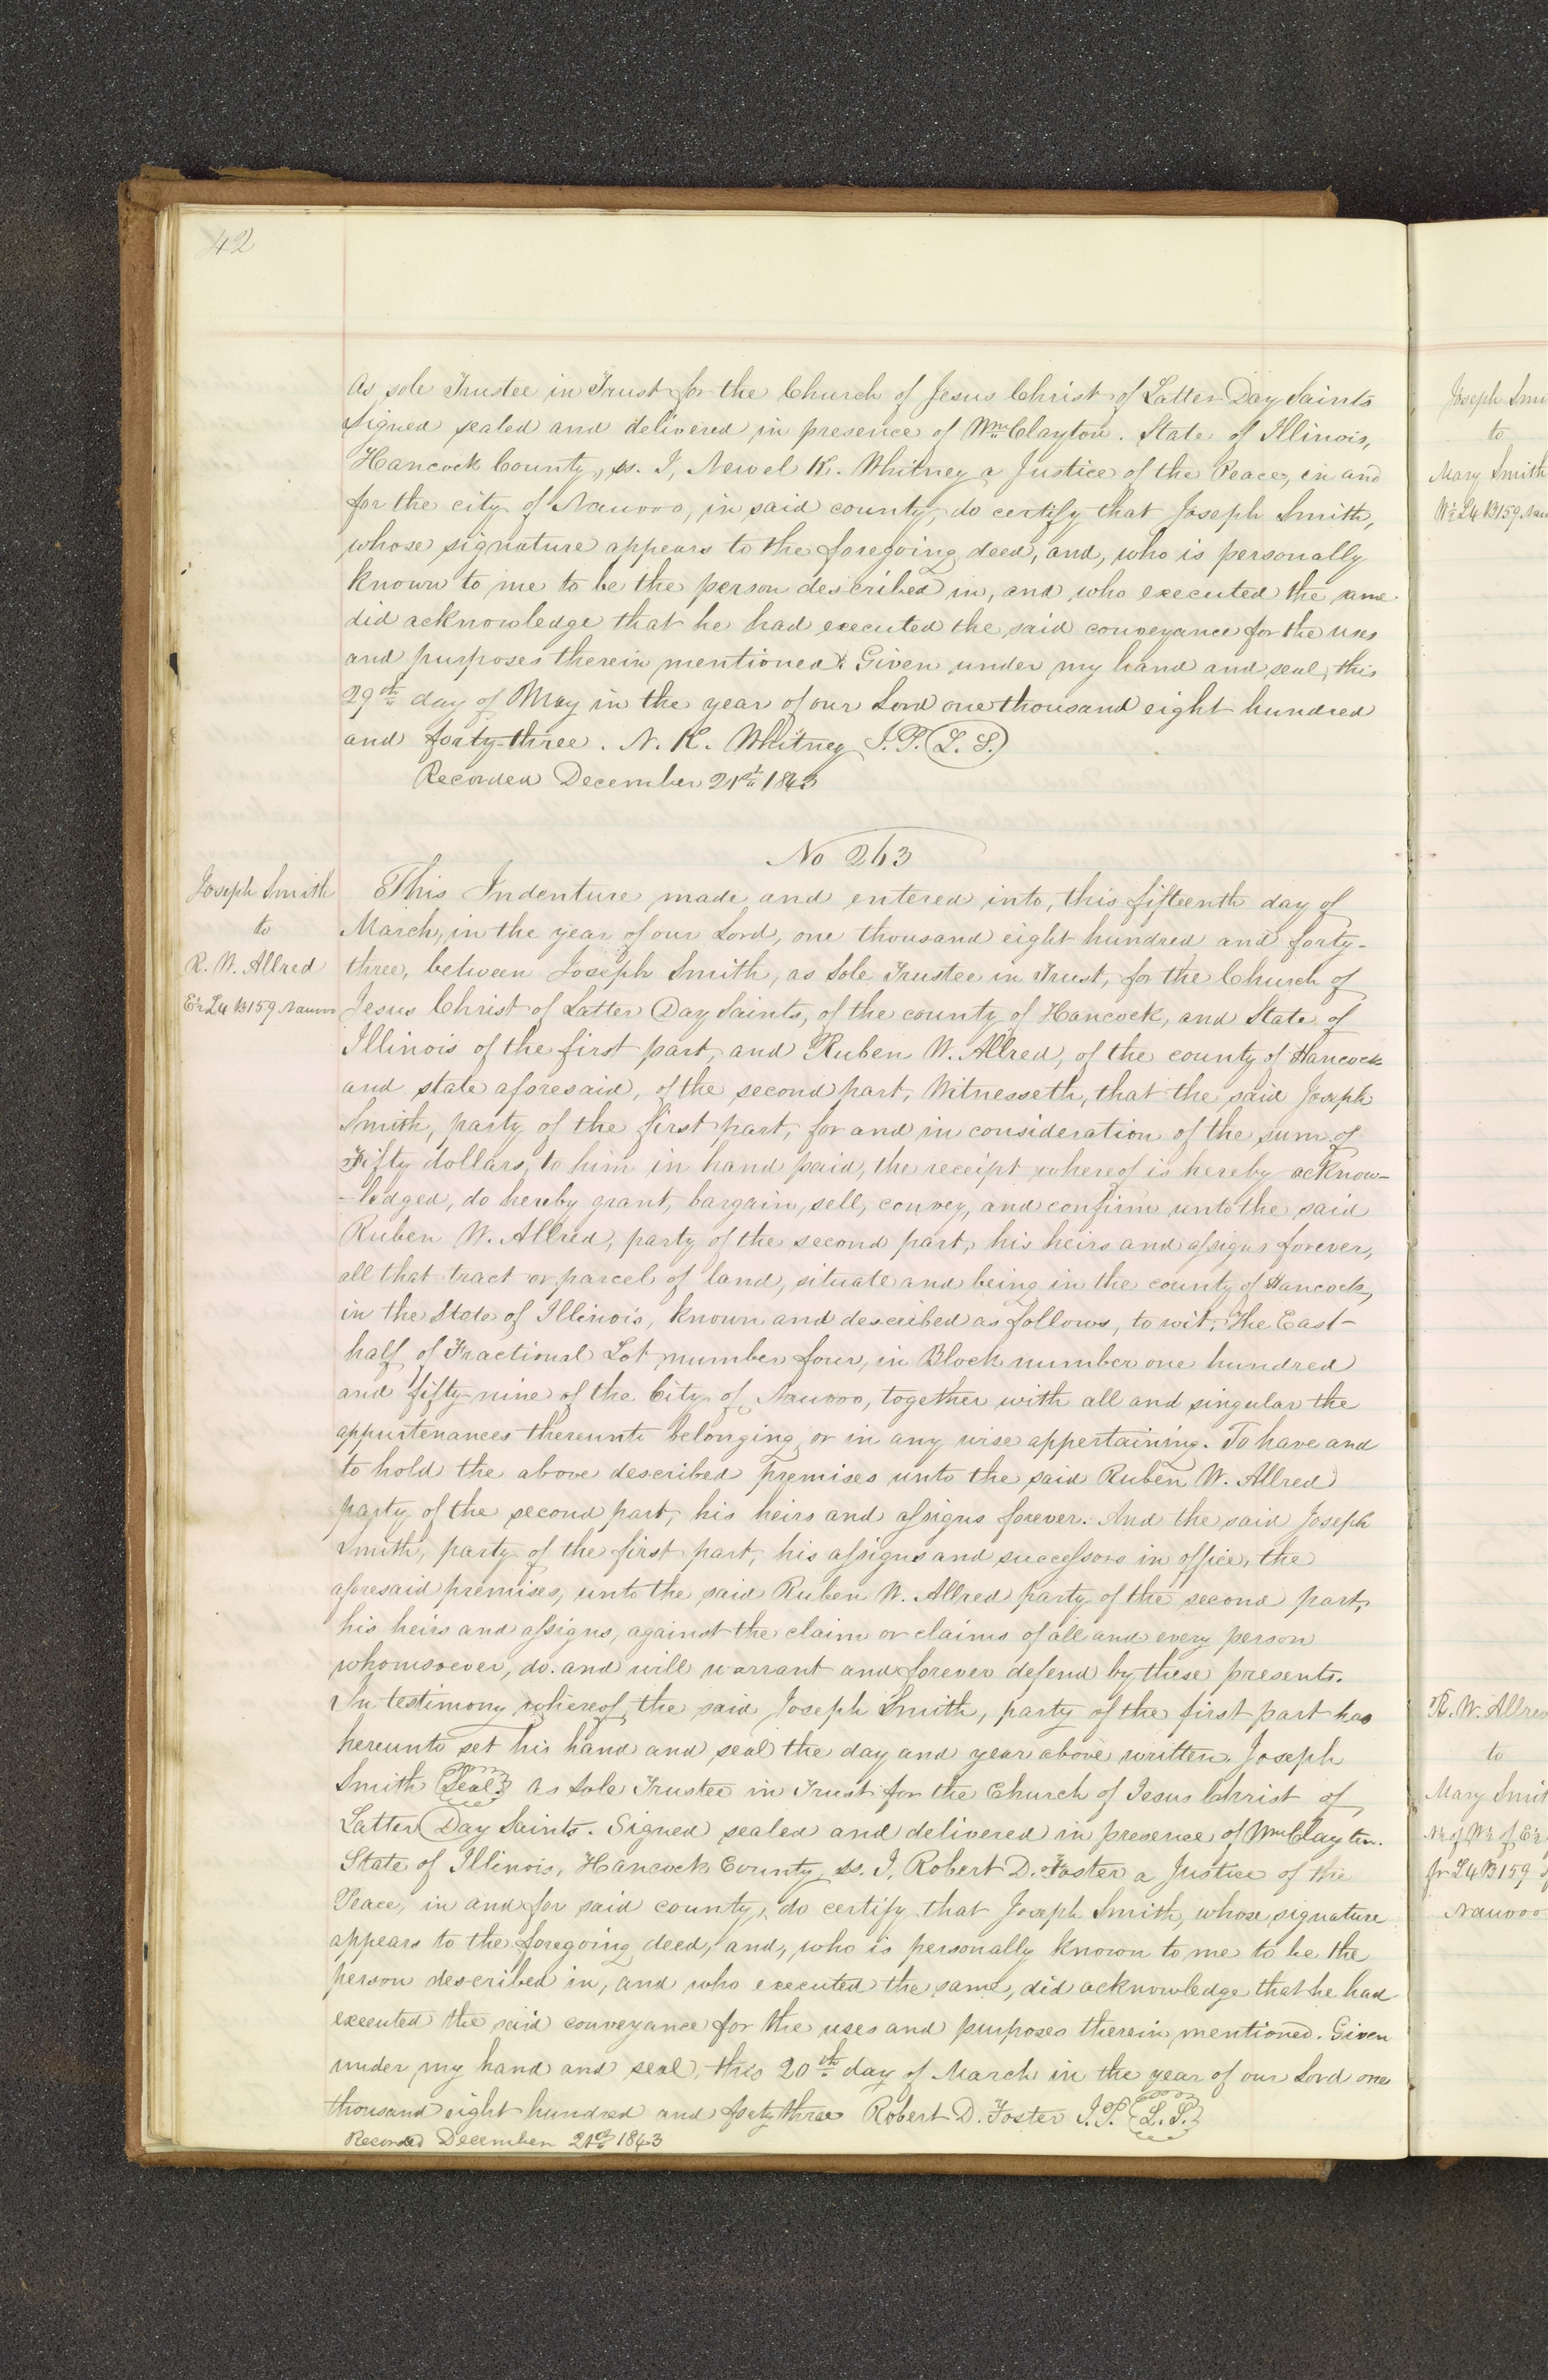 42
As sole Trustee in Trust for the Church of Jesus Christ of Latter Day Saints
Signed sealed and delivered in presence of Wm Clayton. State of Illinois,
Hancock County, ss. I, Newel K. Whitney a Justice of the Peace, in and
for the city of Nauvoo, in said county, do certify that Joseph Smith,
whose signature appears to the foregoing deed, and, who is personally
known to me to be the person described in, and who executed the same
did acknowledge that he had executed the said conveyance for the uses
and purposes therein mentioned. Given under my hand and seal, this
29th day of May in the year of our Lord one thousand eight hundred
and forty-three. N. K. Whitney J.P. (L. S.)
Recorded December 21st 1843
No 263
Joseph Smith
to
R. W. Allred
E½ L4 B159 Nauvoo
This Indenture made and entered into, this fifteenth day of
March, in the year of our Lord, one thousand eight hundred and forty-
three, between Joseph Smith, as Sole Trustee in Trust, for the Church of
Jesus Christ of Latter Day Saints, of the county of Hancock, and State of
Illinois of the first part, and Ruben W. Allred, of the county of Hancock
and state aforesaid, of the second part, Witnesseth, that the said Joseph
Smith, party of the first part, for and in consideration of the sum of
Fifty dollars, to him in hand paid, the receipt whereof is hereby acknow-
-ledged, do hereby grant, bargain, sell, convey, and confirm unto the said
Ruben W. Allred, party of the second part, his heirs and assigns forever,
all that tract or parcel of land, situate and being in the county of Hancock,
in the State of Illinois, known and described as follows, to wit; The East-
half of Fractional Lot number four, in Block number one hundred
and fifty-nine of the City of Nauvoo, together with all and singular the
appurtenances thereunto belonging, or in any wise appertaining. To have and
to hold the above described premises unto the said Ruben W. Allred
party of the second part, his heirs and assigns forever. And the said Joseph
Smith, party of the first part, his assigns and successors in office, the
aforesaid premises, unto the said Ruben W. Allred party of the second part,
his heirs and assigns, against the claim or claims of all and every person
whomsoever, do. and will warrant and forever defend by these presents.
In testimony whereof, the said Joseph Smith, party of the first part has
hereunto set his hand and seal the day and year above written. Joseph
Smith (Seal) As Sole Trustee in Trust for the Church of Jesus Christ of
Latter Day Saints. Signed sealed and delivered in presence of Wm Clayton.
State of Illinois, Hancock County, ss. I, Robert D. Foster a Justice of the
Peace, in and for said county, do certify that Joseph Smith, whose signature
appears to the foregoing deed, and, who is personally known to me to be the
person described in, and who executed the same, did acknowledge that he had
executed the said conveyance for the uses and purposes therein mentioned. Given
under my hand and seal, this 20th day of March in the year of our Lord one
thousand eight hundred and forty three Robert D. Foster J.P. (L. S.)
Recorded December 21st 1843
Joseph Smi
to
Mary Smith
W½ L4 B159 Nau
R. W. Allred
to
Mary Smit
N½ of W½ of E½
fr L4 B159
Nauvoo